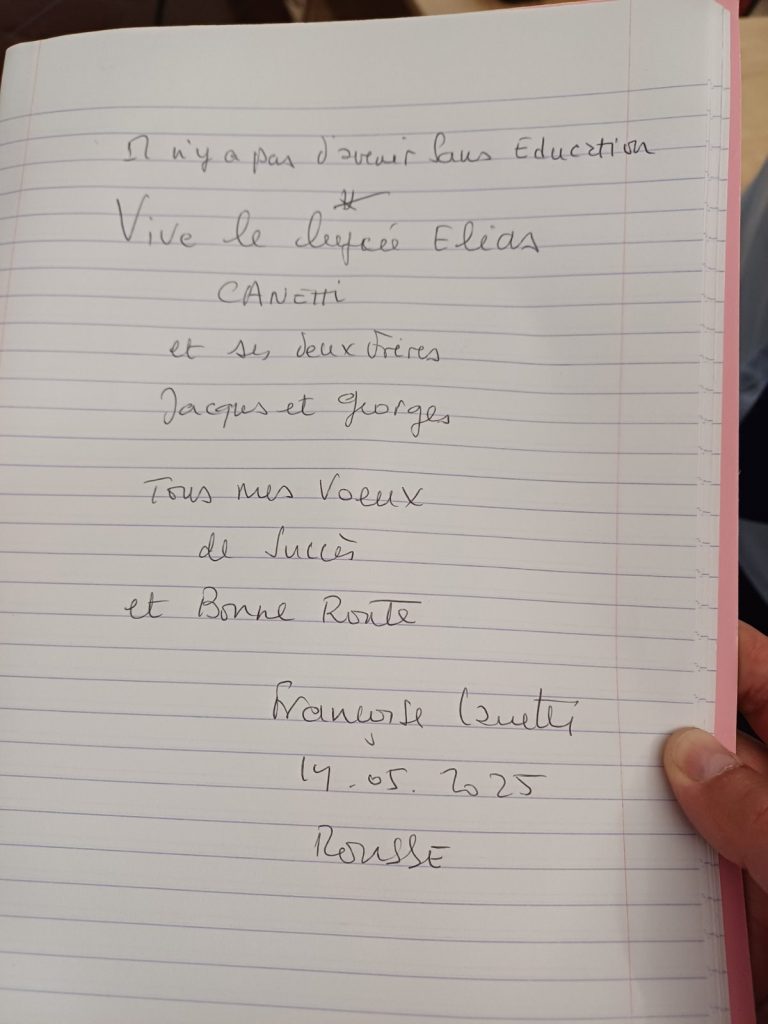 Il n'y a pas d'avenir sans Education
*
Vive le lycée Elias
CANEtti
et ses deux Frères
Jacques et Georges
Tous mes Voeux
de Succès
et Bonne Route
Françoise Canetti
14.05.2025
ROUSSE